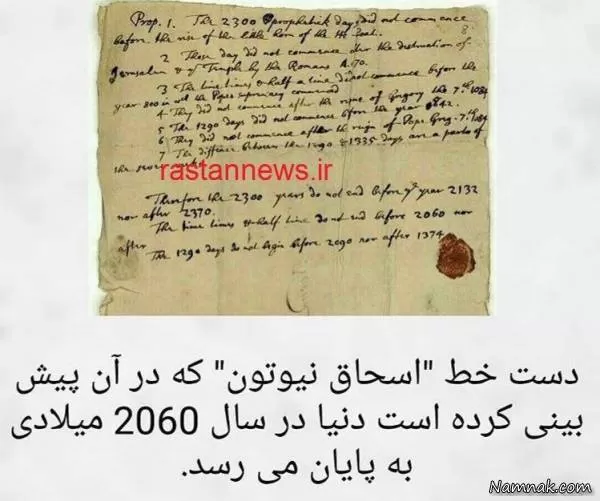 Prop. 1. The 2300 prophetick days did not commence
before the rise of the little horn of the He Goat.
2 Those day did not commence after the destruction of
Jerusalem & ye Temple by the Romans A. 70.
3 The time times & half a time did not commence before the
year 800 in wch the Popes supremacy commenced
4 They did not commence after the reigne of Gregory the 7th 1084
5 The 1290 days did not commence before the year 842.
6 They did not commence after the reign of Pope Greg. 7th 1084
7 The difference between the 1290 & 1335 days are a parts of
the seven
rastannews.ir
Therefore the 2300 years do not end before ye year 2132
nor after 2370.
The time times & half time do not end before 2060 nor
after
The 1290 days do not begin before 2090 nor after 1374
دست خط "اسحاق نیوتون" که در آن پیش
بینی کرده است دنیا در سال 2060 میلادی
به پایان می رسد.
Namnak.com